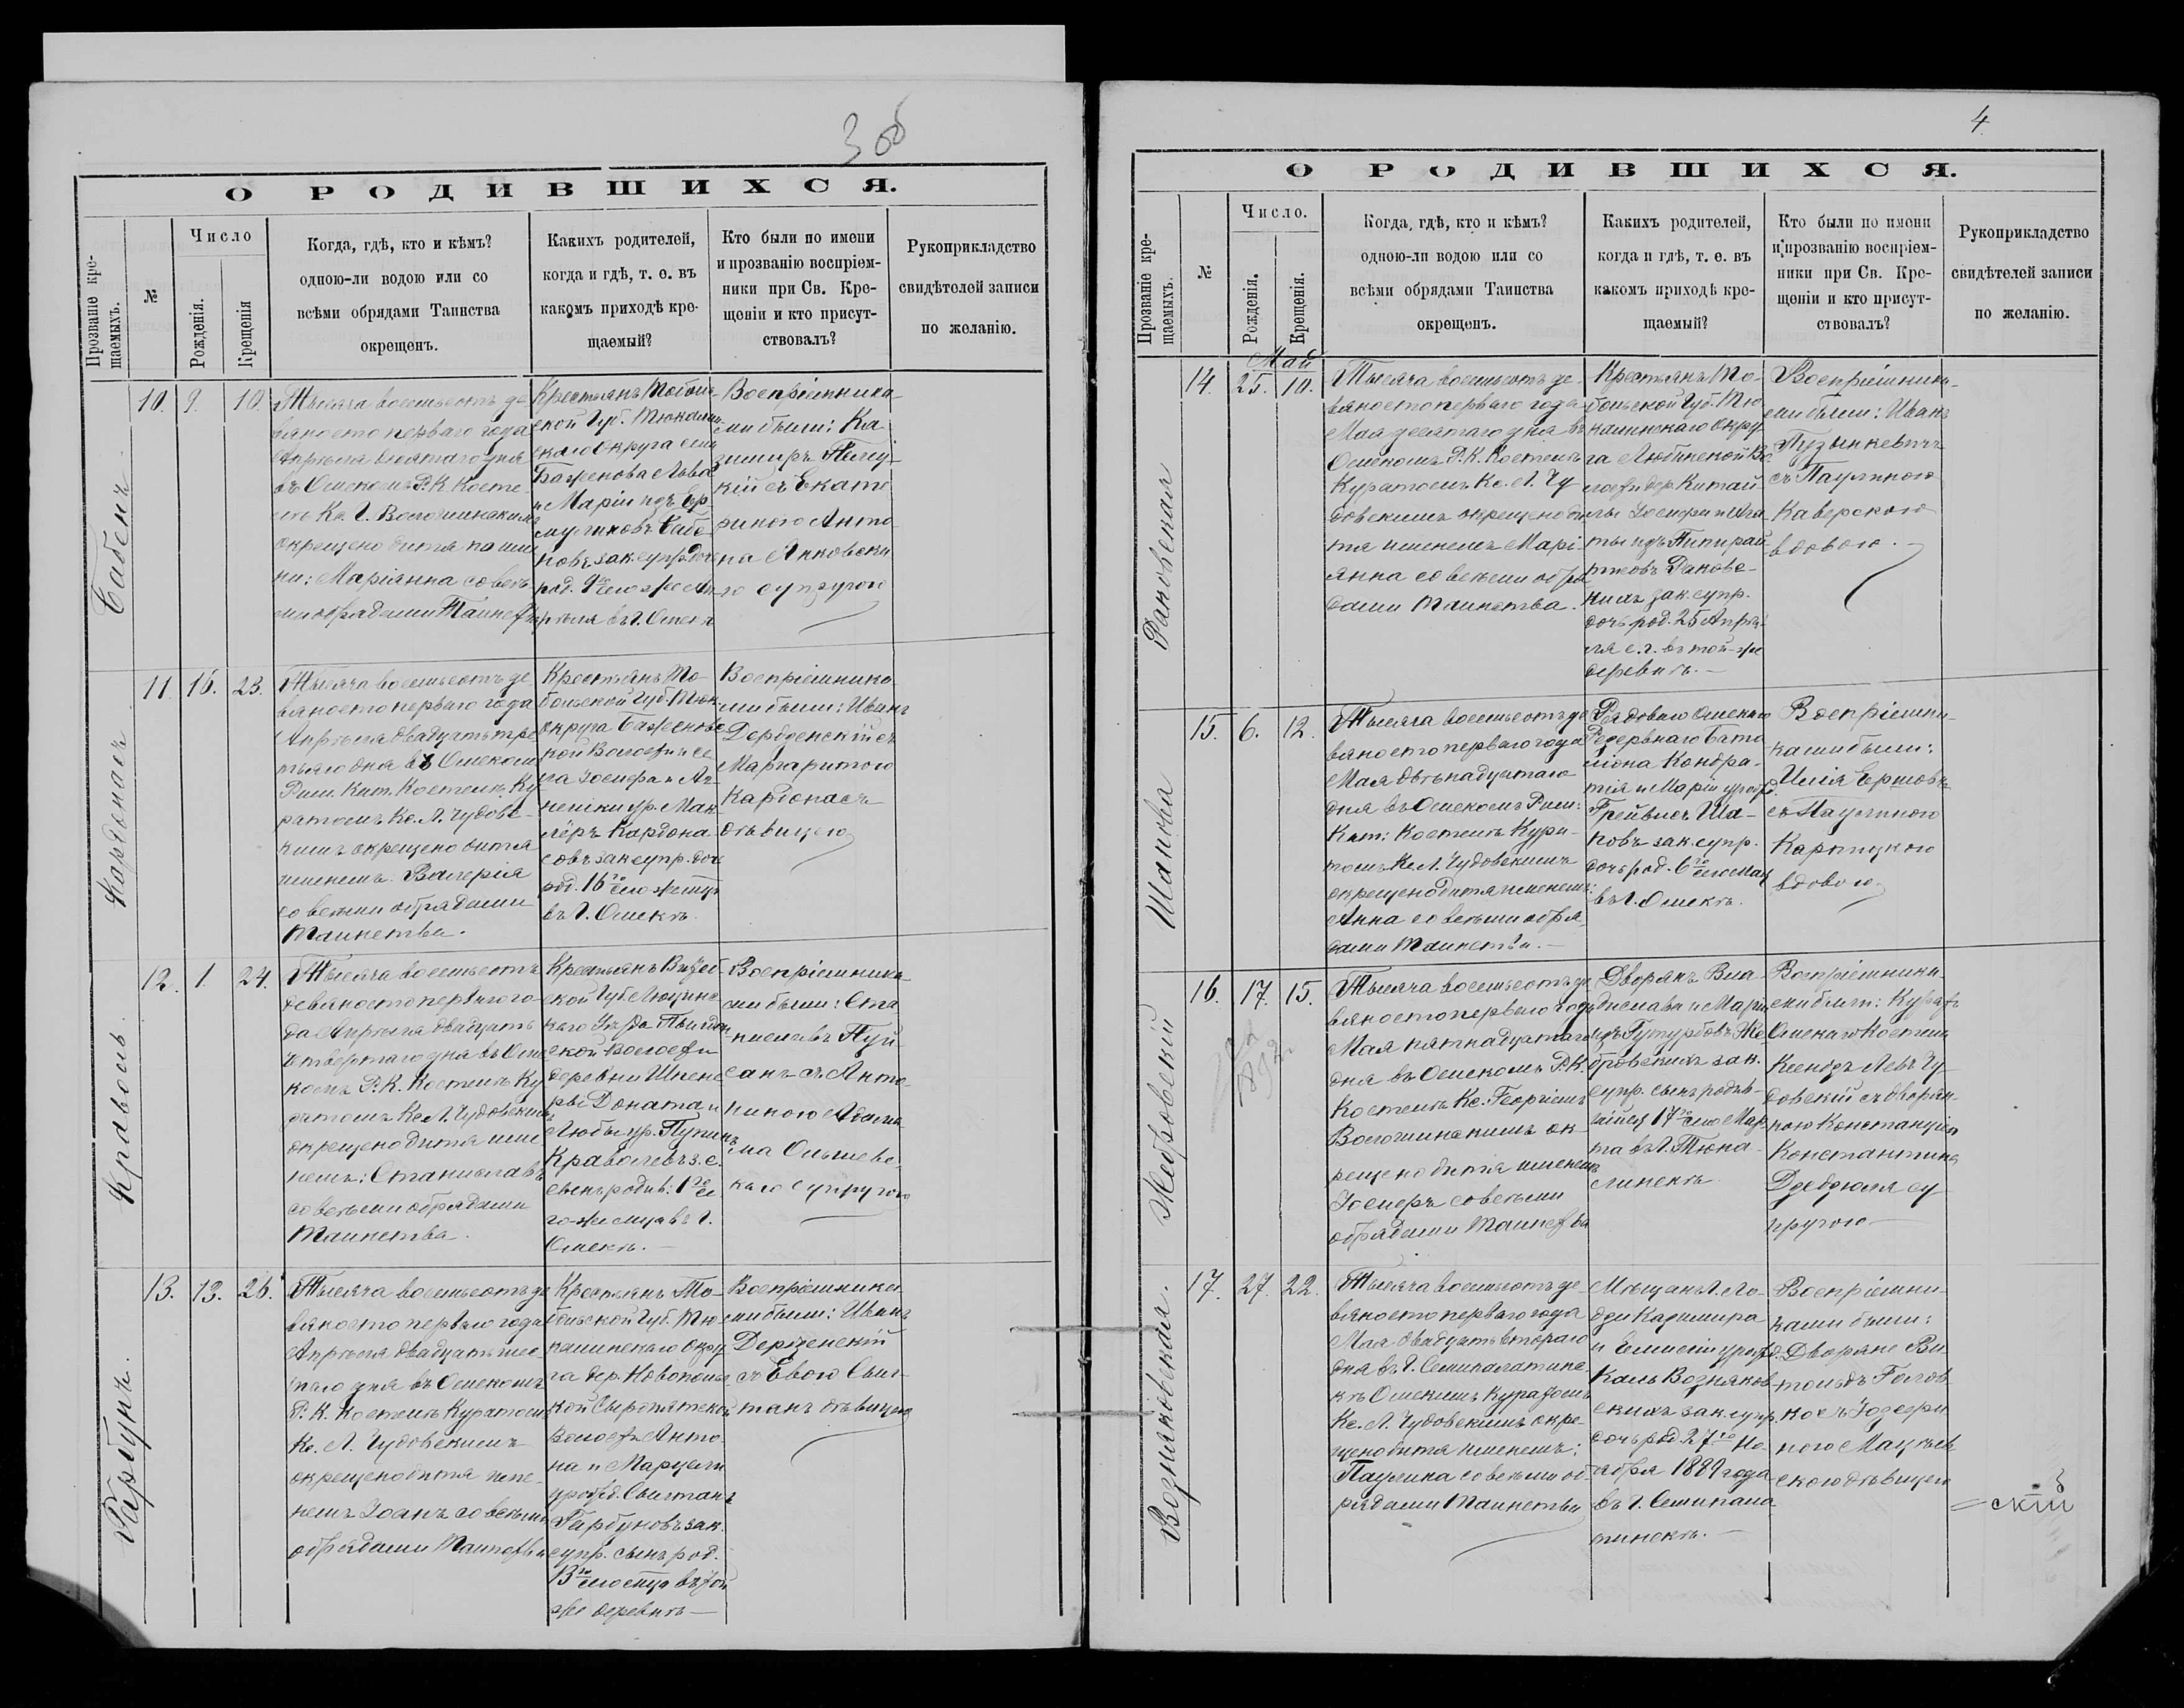 3 об
О РОДИВШИХСЯ.
Прозваніе кре-
щаемыхъ.
№
Число
Рожденія.
Крещенія
Когда, гдѣ, кто и кѣмъ?
одною-ли водою или со
всѣми обрядами Таинства
окрещенъ.
Какихъ родителей,
когда и гдѣ, т. е. въ
какомъ приходѣ кре-
щаемый?
Кто были по имени
и прозванію воспріем-
ники при Св. Кре-
щеніи и кто присут-
ствовалъ?
Рукоприкладство
свидѣтелей записи
по желанію.
10. 9. 10.
Тысяча восемьсотъ де
вяносто перваго года
Апрѣля десятаго дня
въ Омскомъ Р. К. Косте
лѣ Кс. Г. Волошинскимъ
окрещено дитя по име
ни: Маріанна со всѣ
ми обрядами Таинства
Крестьянъ Тоболь
ской Губ. Тюкалин
скаго Округа села
Баженова Льва
и Маріи изъ
зак. супр. дочь
род. 9го сего же Ап
рѣля въ Г. Омскѣ
Воспріемника
ми были: Ка
зимиръ
съ Екате
риною Анто
на Янковска
го супругою
Кардонасъ
11. 16. 23.
Тысяча восемьсотъ де
вяносто перваго года
Апрѣля двадцать тре
тьяго дня въ Омскомъ
Рим. Кат. Костелѣ Ку
ратомъ Кс. Л. Чудовс-
кимъ окрещено дитя
именемъ Валерія
со всѣми обрядами
Таинства.
Крестьянъ То-
больской Губ. Тюк.
округа Баженовс
кой Волости и се
ла Іосифа и Аг
нешки ур. Мак
лёръ Кардона
совъ зак. супр. дочь
род. 16го сего же м-ца
въ Г. Омскѣ.
Воспріемника
ми были: Иванъ
Дерденскій съ
Маргаритою
Кардонасъ
дѣвицею
Краволь.
12. 1. 24.
Тысяча восемьсотъ
девяносто перваго го-
да Апрѣля двадцать
четвертаго дня въ Омс
комъ Р. К. Костелѣ Ку
ратомъ Кс. Л. Чудовскимъ
окрещено дитя име
немъ: Станиславъ
со всѣми обрядами
Таинства.
Крестьянъ Витеб
ской Губ. Люцинс
каго Уѣзда
ской Волости
деревни
Доната и
Любы ур.
Краволевъ з. с.
сынъ родив: 1го се
го же м-ца въ Г.
Омскѣ.
Воспріемника-
ми были: Ста
ниславъ
санъ съ Анто-
ниною Адама
Ольшевс
каго супругою
Гарбунъ.
13. 13. 26.
Тысяча восемьсотъ де
вяносто перваго года
Апрѣля двадцать шес-
таго дня въ Омскомъ
Р. К. Костелѣ Куратомъ
Кс. Л. Чудовскимъ
окрещено дитя име-
немъ Іоанъ со всѣми
обрядами Таинства
Крестьянъ То-
больской Губ. Тю
калинскаго Окру
га дер. Новопольс
кой Сыропятской
Волости Анто
на и Марцели
урожд. Свилтанъ
Гарбуновъ зак.
супр. сынъ род.
13го сего м-ца въ той
же деревнѣ
Воспріемника
ми были: Иванъ
Дерденскій
съ Евою Свил-
танъ дѣвицею
4
О РОДИВШИХСЯ.
Прозваніе кре-
щаемыхъ.
№
Число.
Рожденія.
Крещенія.
Когда, гдѣ, кто и кѣмъ?
одною-ли водою или со
всѣми обрядами Таинства
окрещенъ.
Какихъ родителей,
когда и гдѣ, т. е. въ
какомъ приходѣ кре-
щаемый?
Кто были по имени
и прозванію воспріем-
ники при Св. Кре-
щеніи и кто присут-
ствовалъ?
Рукоприкладство
свидѣтелей записи
по желанію.
Май
Раковская
14. 25. 10.
Тысяча восемьсотъ де-
вяносто перваго года
Мая десятаго дня въ
Омскомъ Р. К. Костелѣ
Куратомъ Кс. Л. Чу
довскимъ окрещено ди
тя именемъ Марі-
анна со всѣми обря
дами Таинства.
Крестьянъ То-
больской Губ. Тю
калинскаго Окру
га Любинской Во
лости дер. Китай-
лы Іосифа и Ага
ты изъ
Раковс-
кихъ зак. супр.
дочь род. 25 Апрѣ-
ля с. г. въ той-же
деревнѣ.
Воспріемника-
ми были: Иванъ
Пузынкевичъ
съ Паулиною
Каверскою
вдовою.
Шапова
15. 6. 12.
Тысяча восемьсотъ де
вяносто перваго года
Мая двѣнадцатаго
дня въ Омскомъ Рим:
Кат: Костелѣ Кура-
томъ Кс. Л. Чудовскимъ
окрещено дитя именемъ:
Анна со всѣми обря
дами Таинства.
Рядоваго Омскаго
Резервнаго Бата
ліона Кондра-
тія и Маріи урожд.
Грейвисъ Ша-
повъ зак. супр.
дочь род. 6го сего Мая
въ Г. Омскѣ.
Воспріемни-
ками были:
Илія Ершовъ
съ Паулиною
Карпицкою
вдовою
Жебровскій
16. 17. 15.
Тысяча восемьсотъ де
вяносто перваго года
Мая пятнадцатаго
дня въ Омскомъ Р. К.
Костелѣ Кс. Георгіемъ
Волошинскимъ ок
рещено дитя именемъ
Іосифъ со всѣми
обрядами Таинства
Дворянъ Вла-
дислава и Маріи
изъ Гутурбовъ Же
бровскихъ зак.
супр. сынъ родив-
шійся 17го сего Мар
та въ Г. Тюка-
линскѣ
Воспріемника-
ми были: Куратъ
Омскаго Костела
Ксендзъ Левъ Чу
довскій съ дворян-
кою Констанціею
Константина
Дзедзюля су
пругою
Возняковская.
17. 27. 22.
Тысяча восемьсотъ де
вяносто перваго года
Мая двадцать втораго
дня въ Г. Семипалатинс
кѣ Омскимъ Куратомъ
Кс. Л. Чудовскимъ окре-
щено дитя именемъ:
Паулина со всѣми об
рядами Таинства
Мѣщанъ г. Ло-
дзи Казимира
и Емиліи урожд.
Каль Возняков
скихъ зак. супр.
дочь род. 27го Но-
ября 1889 года
въ Г. Семипала
тинскѣ.
Воспріемни-
ками были:
Дворяне Ви
тольдъ Голов
ко съ Іозефи
ною Мацкев
скою дѣвицею
скій